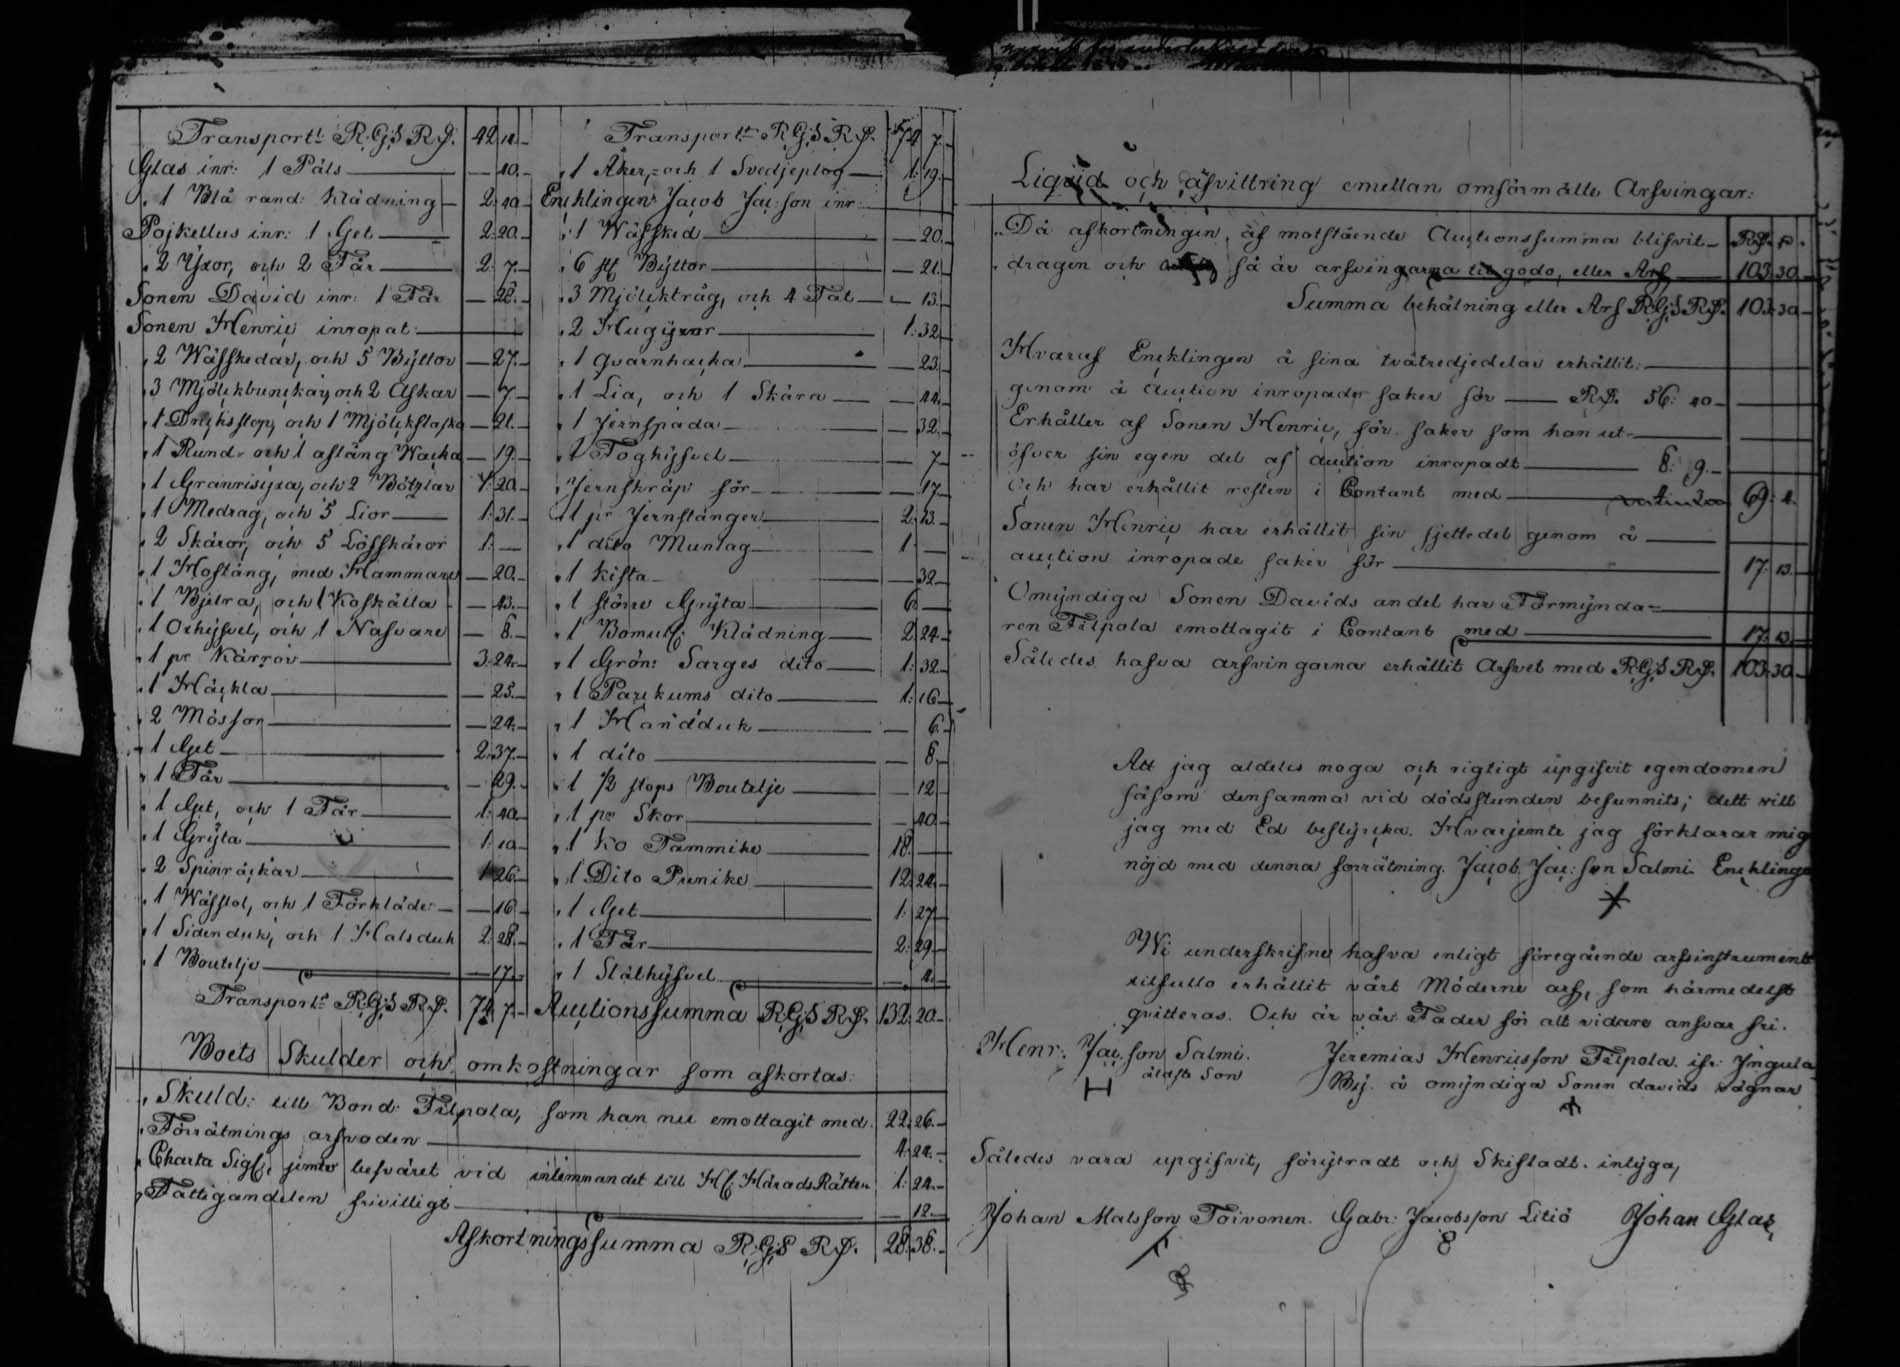 Transport: R.G:S R.S. 42 12.
Glas inr: 1 Päls — 40.
" 1 Blå rand: Klädning 2: 40
Pojkellus inr: 1 Get 2: 20.
" 2 Yxor, och 2 Får 2: 7.
Sonen David inr: 1 Får — 28.
Sonen Henric inropat:
" 2 Wäfskedar, och 5 Byttor — 27.
" 3 Mjölckbunckar, och 2 Askar — 7.
" 1 Drickstop, och 1 Mjölckflaska — 21.
" 1 Rund- och 1 aflång Wacka — 19.
" 1 Granrisyxa, och 2 Bötzlar 20.
" 1 Medrag, och 5 Lior 1: 31.
" 2 Skäror, och 5 Löfskäror 1: —
" 1 Hoftång, med Hammare — 20.
" 1 Bjelra, och 1 Koskälla — 43.
" 1 Oxhyfvel, och 1 Nafvare — 8.
" 1 pr Kärror 3: 24.
" 1 Häckla — 25.
" 2 Mössor — 24.
" 1 Get 2: 37.
" 1 Får — 29.
" 1 Get, och 1 Får 1: 40.
" 1 Gryta 1: 10
" 2 Spinråckar 1 26.
" 1 Wäfstol, och 1 Förkläde: — 16
" 1 Sidenduk, och 1 Halsduk 2: 28.
" 1 Boutelje — 17.
Transport: R.G:S R.S. 74. 7.
Transport: R.G:S R.S. 74 7.
" 1 Åker,- och 1 Svedjeplog 1: 19.
Encklingen Jacob Jac:son inr:
" 1 Wäfsked — 20.
" 6 st Byttor — 21.
" 3 Mjölcktråg, och 4 Fat — 13.
" 2 Hugyxor 1: 32
" 1 Qvarnhacka — 23.
" 1 Lia, och 1 Skära — 44.
" 1 Jernspada — 32.
" 2 Foghyfvel — 7
" Jernskräp för — 17.
" 1 pr Jernstänger 2: 13.
" 1 dito Muntag 1: —
" 1 Kista — 32
" 1 större Gryta 6: —
" 1 Bomulls: Klädning 2: 24
" 1 Grön: Sarges dito 1: 32.
" 1 Parckums dito 1: 16
" 1 Handduk — 6.
" 1 dito — 8.
" 1 1/2 stops Boutelje — 12
" 1 pr Skor — 40.
" 1 Ko Tammike 18. —
" 1 Dito Punike 12: 24.
" 1 Get 1: 27
" 1 Får 2: 29.
" 1 Släthyfvel — 4.
Auctionssumma R.G:S R.S. 132: 20.
Boets Skulder och omkostningar som afkortas:
" Skuld: till Bond: Filpola, som han nu emottagit med. 22: 26.
" Förrätnings arfvoden 4: 24.
" Charta Sig: jemte besväret vid inlemnandet till H: HäradsRätten 1: 24.
" Fattigandelen frivilligt — 12.
Afkortningssumma R.G:S R.S. 28: 38.
Liqvid och afvittring emellan omförmälte Arfvingar:
" Då afkortningen, af motstående Auctionssumma blifvit R.S. s.
dragen och så är arfvingarna til godo, eller Arf 103: 30.
Summa behålning eller Arf R.G:S R.S. 103: 30.
Hvaraf Encklingen å sina tvåtredjedelar erhållit:
genom å Auction inropader saker för R.S. 56: 40
Erhåller af Sonen Henric, för saker som han ut-
öfver sin egen del af auction inropadt 8: 9.
och har erhållit resten i Contant med 69: 4.
Sonen Henric har erhållit sin sjettedel genom å
auction inropade saker för 17. 13.
Omyndiga Sonen Davids andel har Förmynda-
ren Filpola emottagit i Contant med 17. 13.
Således hafva arfvingarna erhållit Arfvet med R.G:S R.S. 103: 30.
Att jag aldeles noga och rigtigt upgifvit egendomen
såsom densamma vid dödsstunden befunnits; dett vill
jag med Ed bestyrcka. Hvarjemte jag förklarar mig
nöjd med denna förrätning. Jacob Jac:son Salmi. Encklinge
Wi underskrifne hafva enligt föregående arfsinstrument
tilfullo erhållit vårt Möderne arf, som härmedelst
qvitteras. Och är vår Fader för alt vidare ansvar fri.
Henr: Jac:son Salmi. Jeremias Henricsson Filpola. ifr: Jngula
äldste Son By. å omyndiga Sonen davids vägnar
Således vara upgifvit, föryttradt och Skiftadt. intyga,
Johan Matsson Toivonen. Gabr: Jacobsson Litiö Johan Glas,